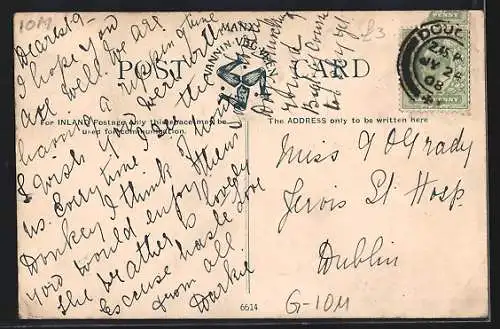 IOM
£3
Dearest G-
I hope you
are well. We are
having a ripen time
I wish you were with
us. Every time I see the
Donkey I think of how
you would enjoy them
The weather is lovely
Excuse haste Love
from all
Darkie
MANX
VANNIN VEG VEEN
POST CARD
For INLAND Postage only this space may be
used for communication.
The ADDRESS only to be written here
DOUG
2.45 P
JY 24
08
PENNY
Miss G O'Grady
Jervis St Hosp.
Dublin
6614
G-IOM